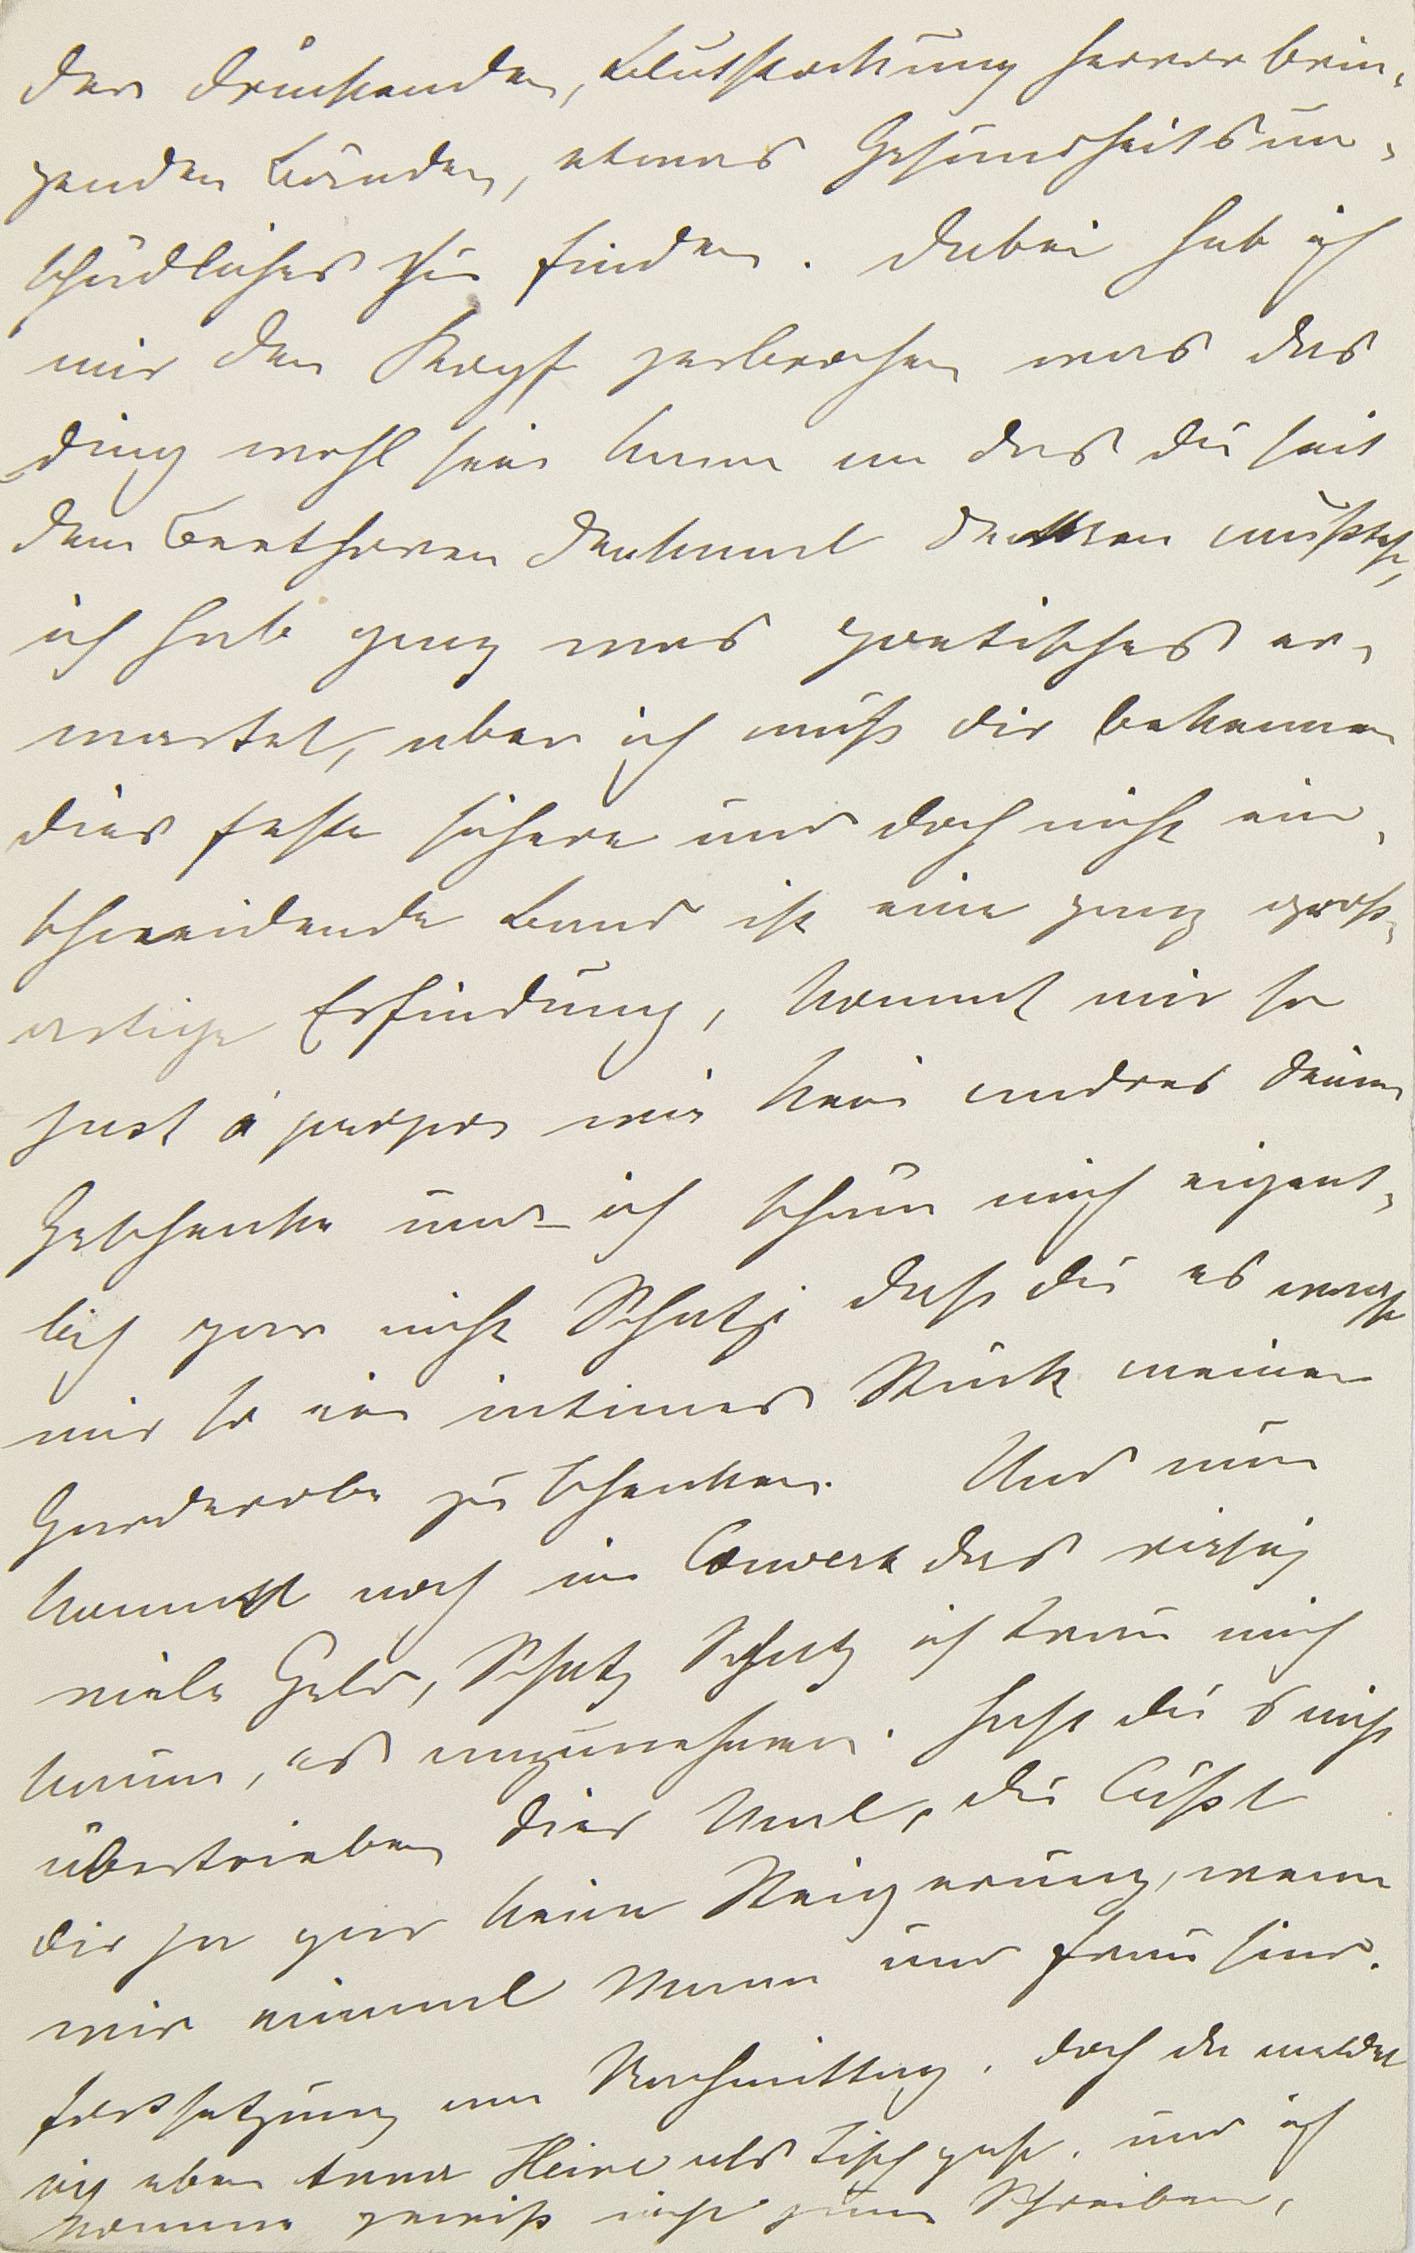 der drückenden, Blutstockung hervorbrin-
genden Bänden, etwas Gesundheitsun-
schädliches zu finden. Dabei hab ich
mir den Kopf zerbrochen was das
Ding wohl sein kann an das du seit
dem Beethoven Denkmal denken mußtest,
ich hab ganz was poetisches er-
wartet, aber ich muß dir bekennen
dies feste sichere und doch nicht ein-
schneidende Band ist eine ganz groß-
artige Erfindung, kommt mir so
just à propos wie kein andres deiner
Geschenke und ich schäm mich eigent-
lich gar nicht Schatz daß du es wagst
mir so ein intimes Stück meiner
Garderobe zu schenken. Und nun
kommt noch im Couvert das riesig
viele Geld, Schatz Schatz ich trau mich
kaum, es anzunehmen. Hast du's nicht
übertrieben dies Mal, du läßt
dir ja gar keine Steigerung, wenn
wir einmal Mann und Frau sind.
Fortsetzung am Nachmittag. Doch da meldet
sich eben Anna Heine als Tischgast. und ich
komme gewiß nicht zum Schreiben,